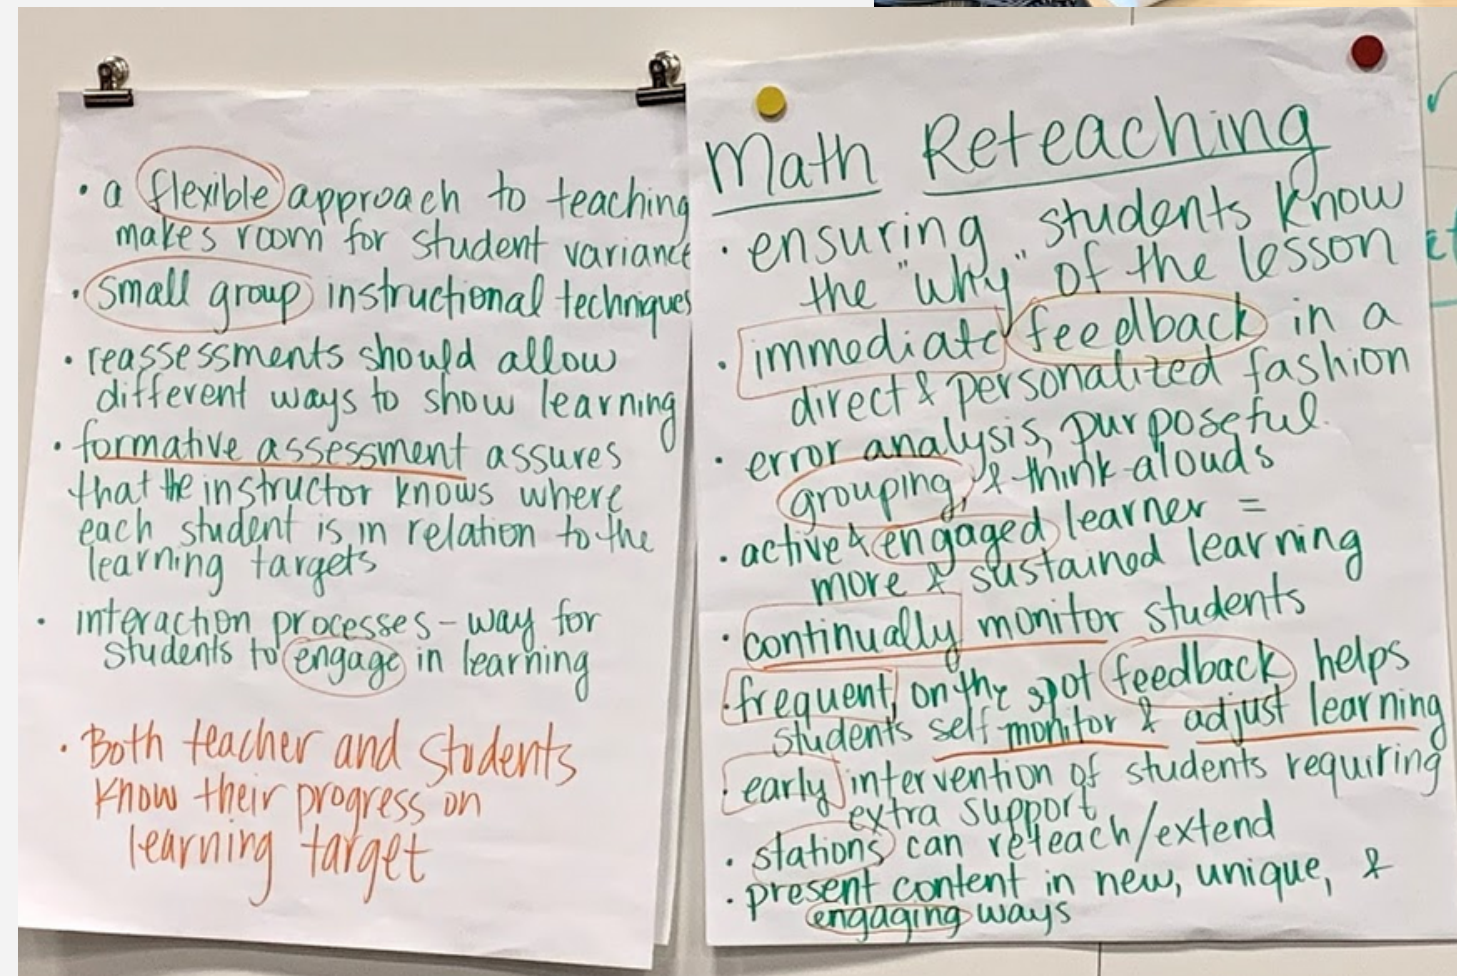 • a flexible approach to teaching
makes room for student variance
• small group instructional techniques
• reassessments should allow
different ways to show learning
• formative assessment assures
that the instructor knows where
each student is in relation to the
learning targets
• interaction processes - way for
students to engage in learning
• Both teacher and students
know their progress on
learning target
Math Reteaching
• ensuring students know
the "why" of the lesson
• immediate feedback in a
direct & personalized fashion
• error analysis, purposeful
grouping, & think-alouds
• active & engaged learner =
more & sustained learning
• continually monitor students
• frequent, on the spot feedback helps
students self-monitor & adjust learning
• early intervention of students requiring
extra support
• stations can reteach/extend
• present content in new, unique, &
engaging ways